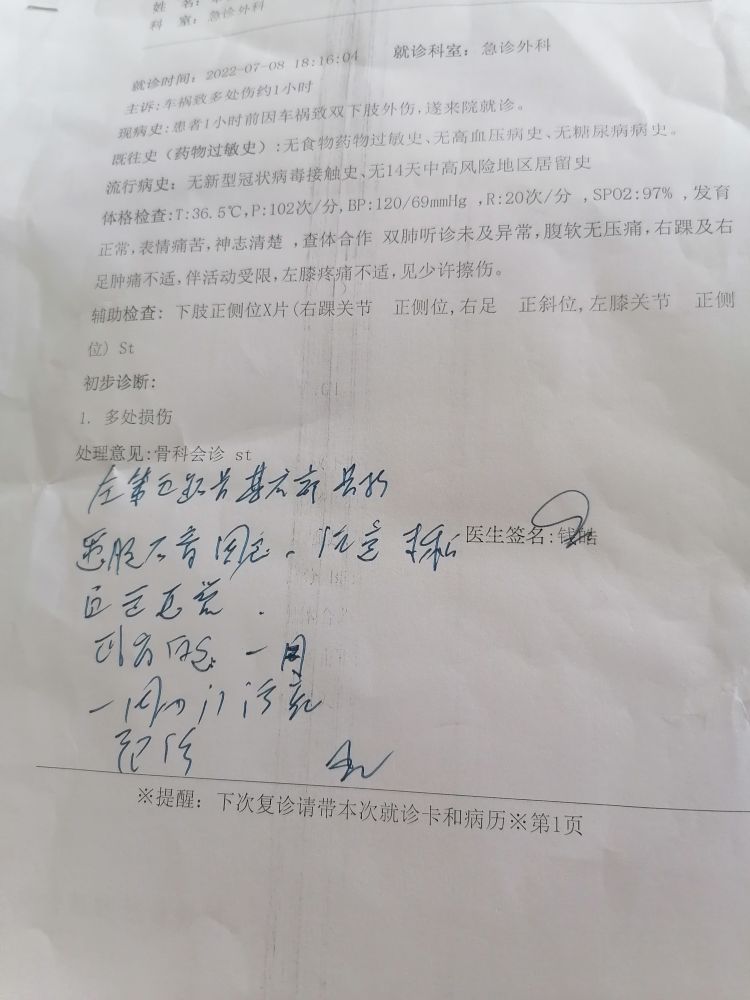 姓 名:
科 室: 急诊外科
就诊时间: 2022-07-08 18:16:04 就诊科室: 急诊外科
主诉:车祸致多处伤约1小时
现病史:患者1小时前因车祸致双下肢外伤,遂来院就诊。
既往史(药物过敏史):无食物药物过敏史、无高血压病史、无糖尿病病史。
流行病史: 无新型冠状病毒接触史、无14天中高风险地区居留史
体格检查:T:36.5℃,P:102次/分,BP:120/69mmHg ,R:20次/分 ,SPO2:97% ,发育
正常,表情痛苦,神志清楚 ,查体合作 双肺听诊未及异常,腹软无压痛,右踝及右
足肿痛不适,伴活动受限,左膝疼痛不适,见少许擦伤。
辅助检查: 下肢正侧位X片(右踝关节 正侧位,右足 正斜位,左膝关节 正侧
位) St
初步诊断:
1. 多处损伤
处理意见:骨科会诊 st
基底部骨折
石膏固定
医生签名:钱皓
一周
一周
※提醒: 下次复诊请带本次就诊卡和病历※第1页